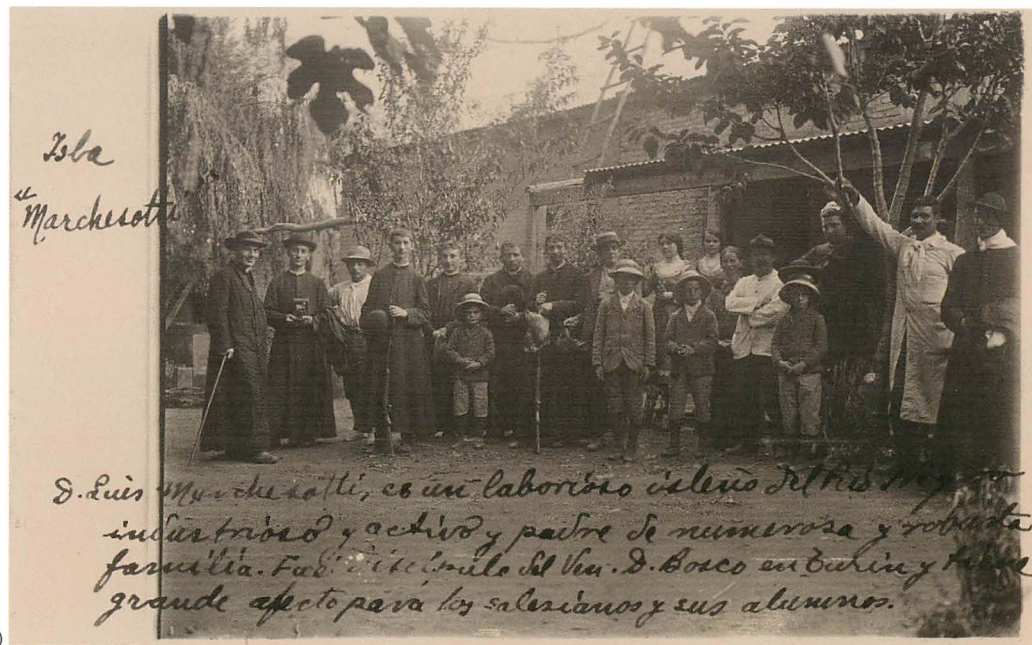 Isla
"Marchesotti
D. Luis Marchesotti, es un laborioso isleño del Río Negro
industrioso y activo y padre de numerosa y robusta
familia. Fué discípulo del Ven. D. Bosco en Turin y tiene
grande afecto para los salesianos y sus alumnos.